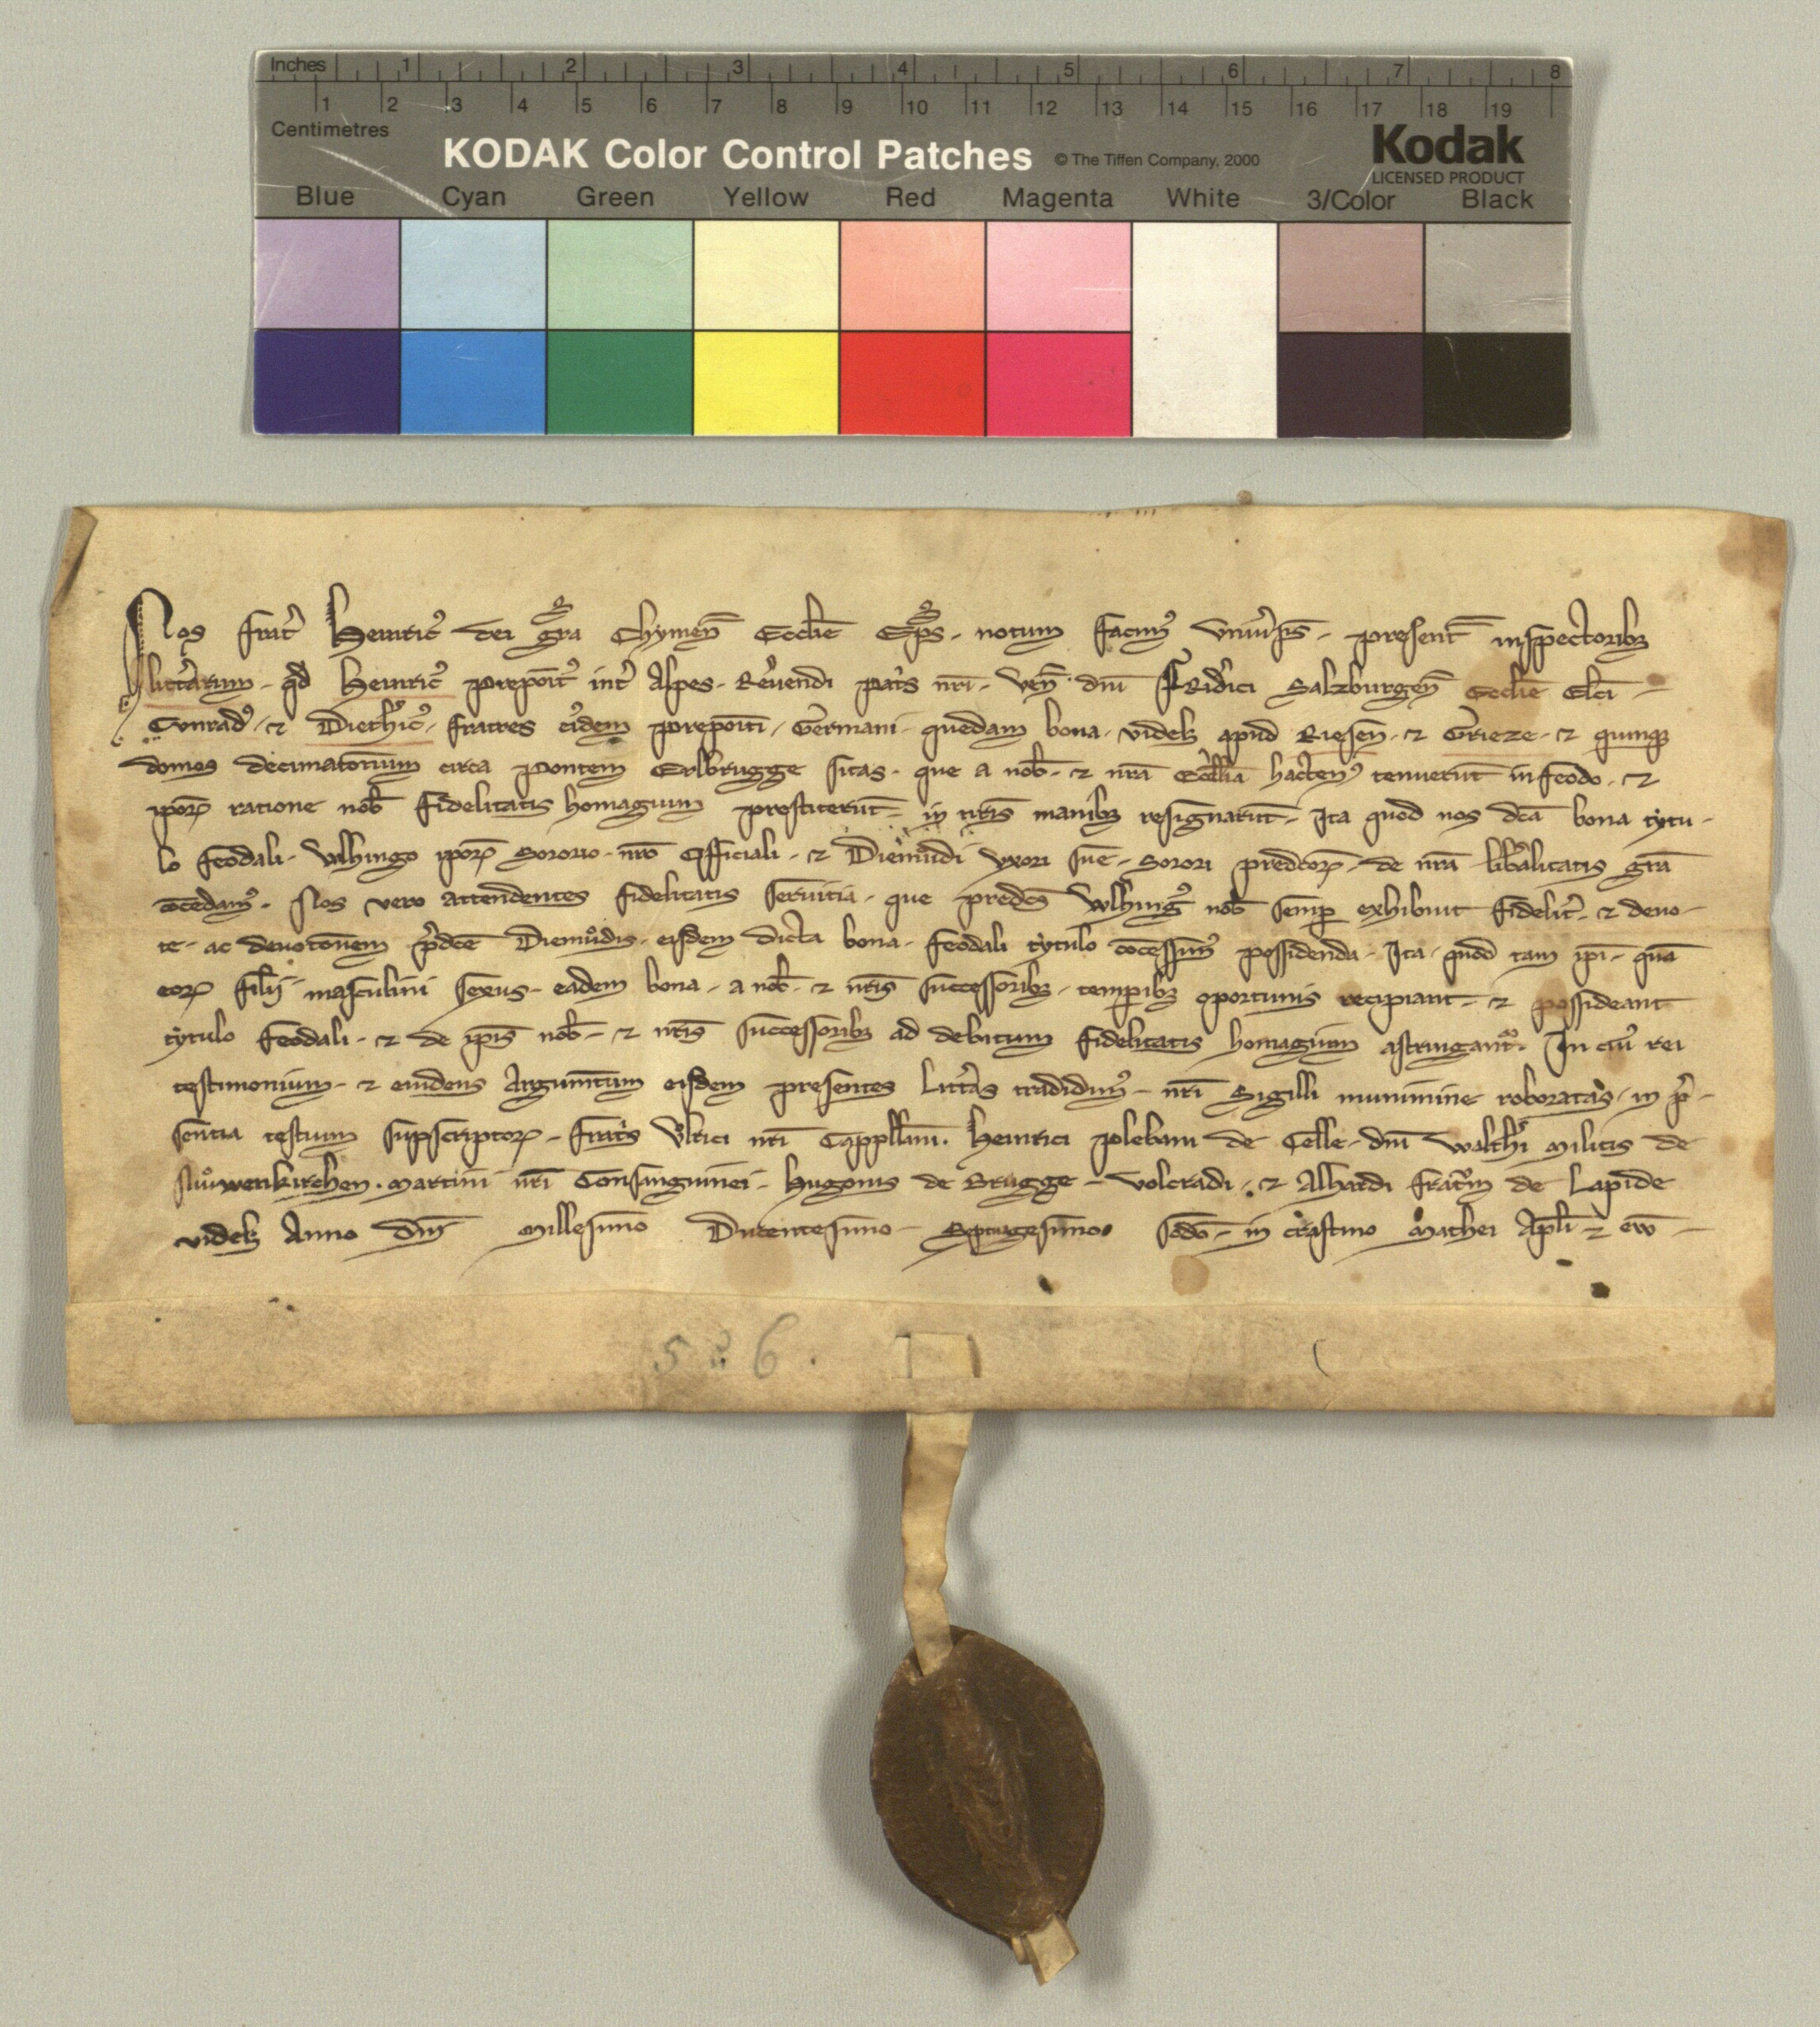 Inches 1 2 3 4 5 6 7 8
1 2 3 4 5 6 7 8 9 10 11 12 13 14 15 16 17 18 19
Centimetres
KODAK Color Control Patches © The Tiffen Company, 2000 Kodak
LICENSED PRODUCT
Blue Cyan Green Yellow Red Magenta White 3/Color Black
Nos frat͛ Heinricꝰ dei gr̄a Chymen̄ Eccl̄ie Ep̄s. notum facimꝰ vniu͛sis. present̄ inspectoribꝫ
litt͛arum. qd̄ Heinricꝰ prepoītꝰ int͛ Alpes. Reu͛endi pat͛s nr̄i. ven̄. dn̄i Frid͛ici Salzburgen̄ Eccl̄ie El̄ci.
Conradꝰ. ⁊ Diethͥcꝰ. fratres eiꝰdem prepoīti. Germani. quedam bona. videlꝫ apud Riesen̄. ⁊ Grieze. ⁊ quinqꝫ
domos decimatorium circa pontem Erlbrugge sitas. que a nob̄. ⁊ nr̄a Eccl̄ia hactenꝰ tenuerūt in feodo. ⁊
ip̄oꝝ ratione nob̄ fidelitatis homagium prestiterūt. in nr̄is manibꝫ resignarūt. Ita quod nos dc̄a bona tytu-
lo feodali. Wlhingo ip̄oꝝ Sororio. nr̄o Officiali. ⁊ Diemudi vxori sue. Sorori predc̄oꝝ. de nr̄a lib͛alitatis gr̄a
ↄcedamꝰ. Nos vero attendentes fidelitatis seruitia. que predc̄s Wlhingꝰ nob̄ semꝑ exhibuit fidelit͛. ⁊ deuo-
te. ac deuotōnem p͛dc̄e Diemůdis. eisdem dicta bona. feodali tytulo ↄcessimꝰ possidenda. Ita. quod tam ip̄i. quā
eoꝝ filii masculini sexus. eadem bona. a nob̄. ⁊ nr̄is successoribꝫ. temꝑibꝫ oportunis recipiant. ⁊ possideant
tytulo feodali. ⁊ de ip̄is nob̄. ⁊ nr̄is successoribꝫ ad debitum fidelitatis homagium astringant᷑. In cuiꝰ rei
testimonium. ⁊ euidens Argumētum eisdem presentes Litt͛as tradidimꝰ. nr̄i Sigilli munimine roboratas. in p͛-
sentia testium supscriptoꝝ. frat͛s Vͦlrici nr̄i Cappll̄ani. Heinrici plebani de Celle. dn̄i Walth͛i militis de
Nůwenkirchen. Martini nr̄i Consanguinei. Hugonis de Brugge. Volcradi. ⁊ Alhardi frat͛m de Lapide
videlꝫ Anno dn̄i Millesimo Ducentesimo Septuagesimo Sc̄do. in crastino Mathei Apl̄i ⁊ ew̄